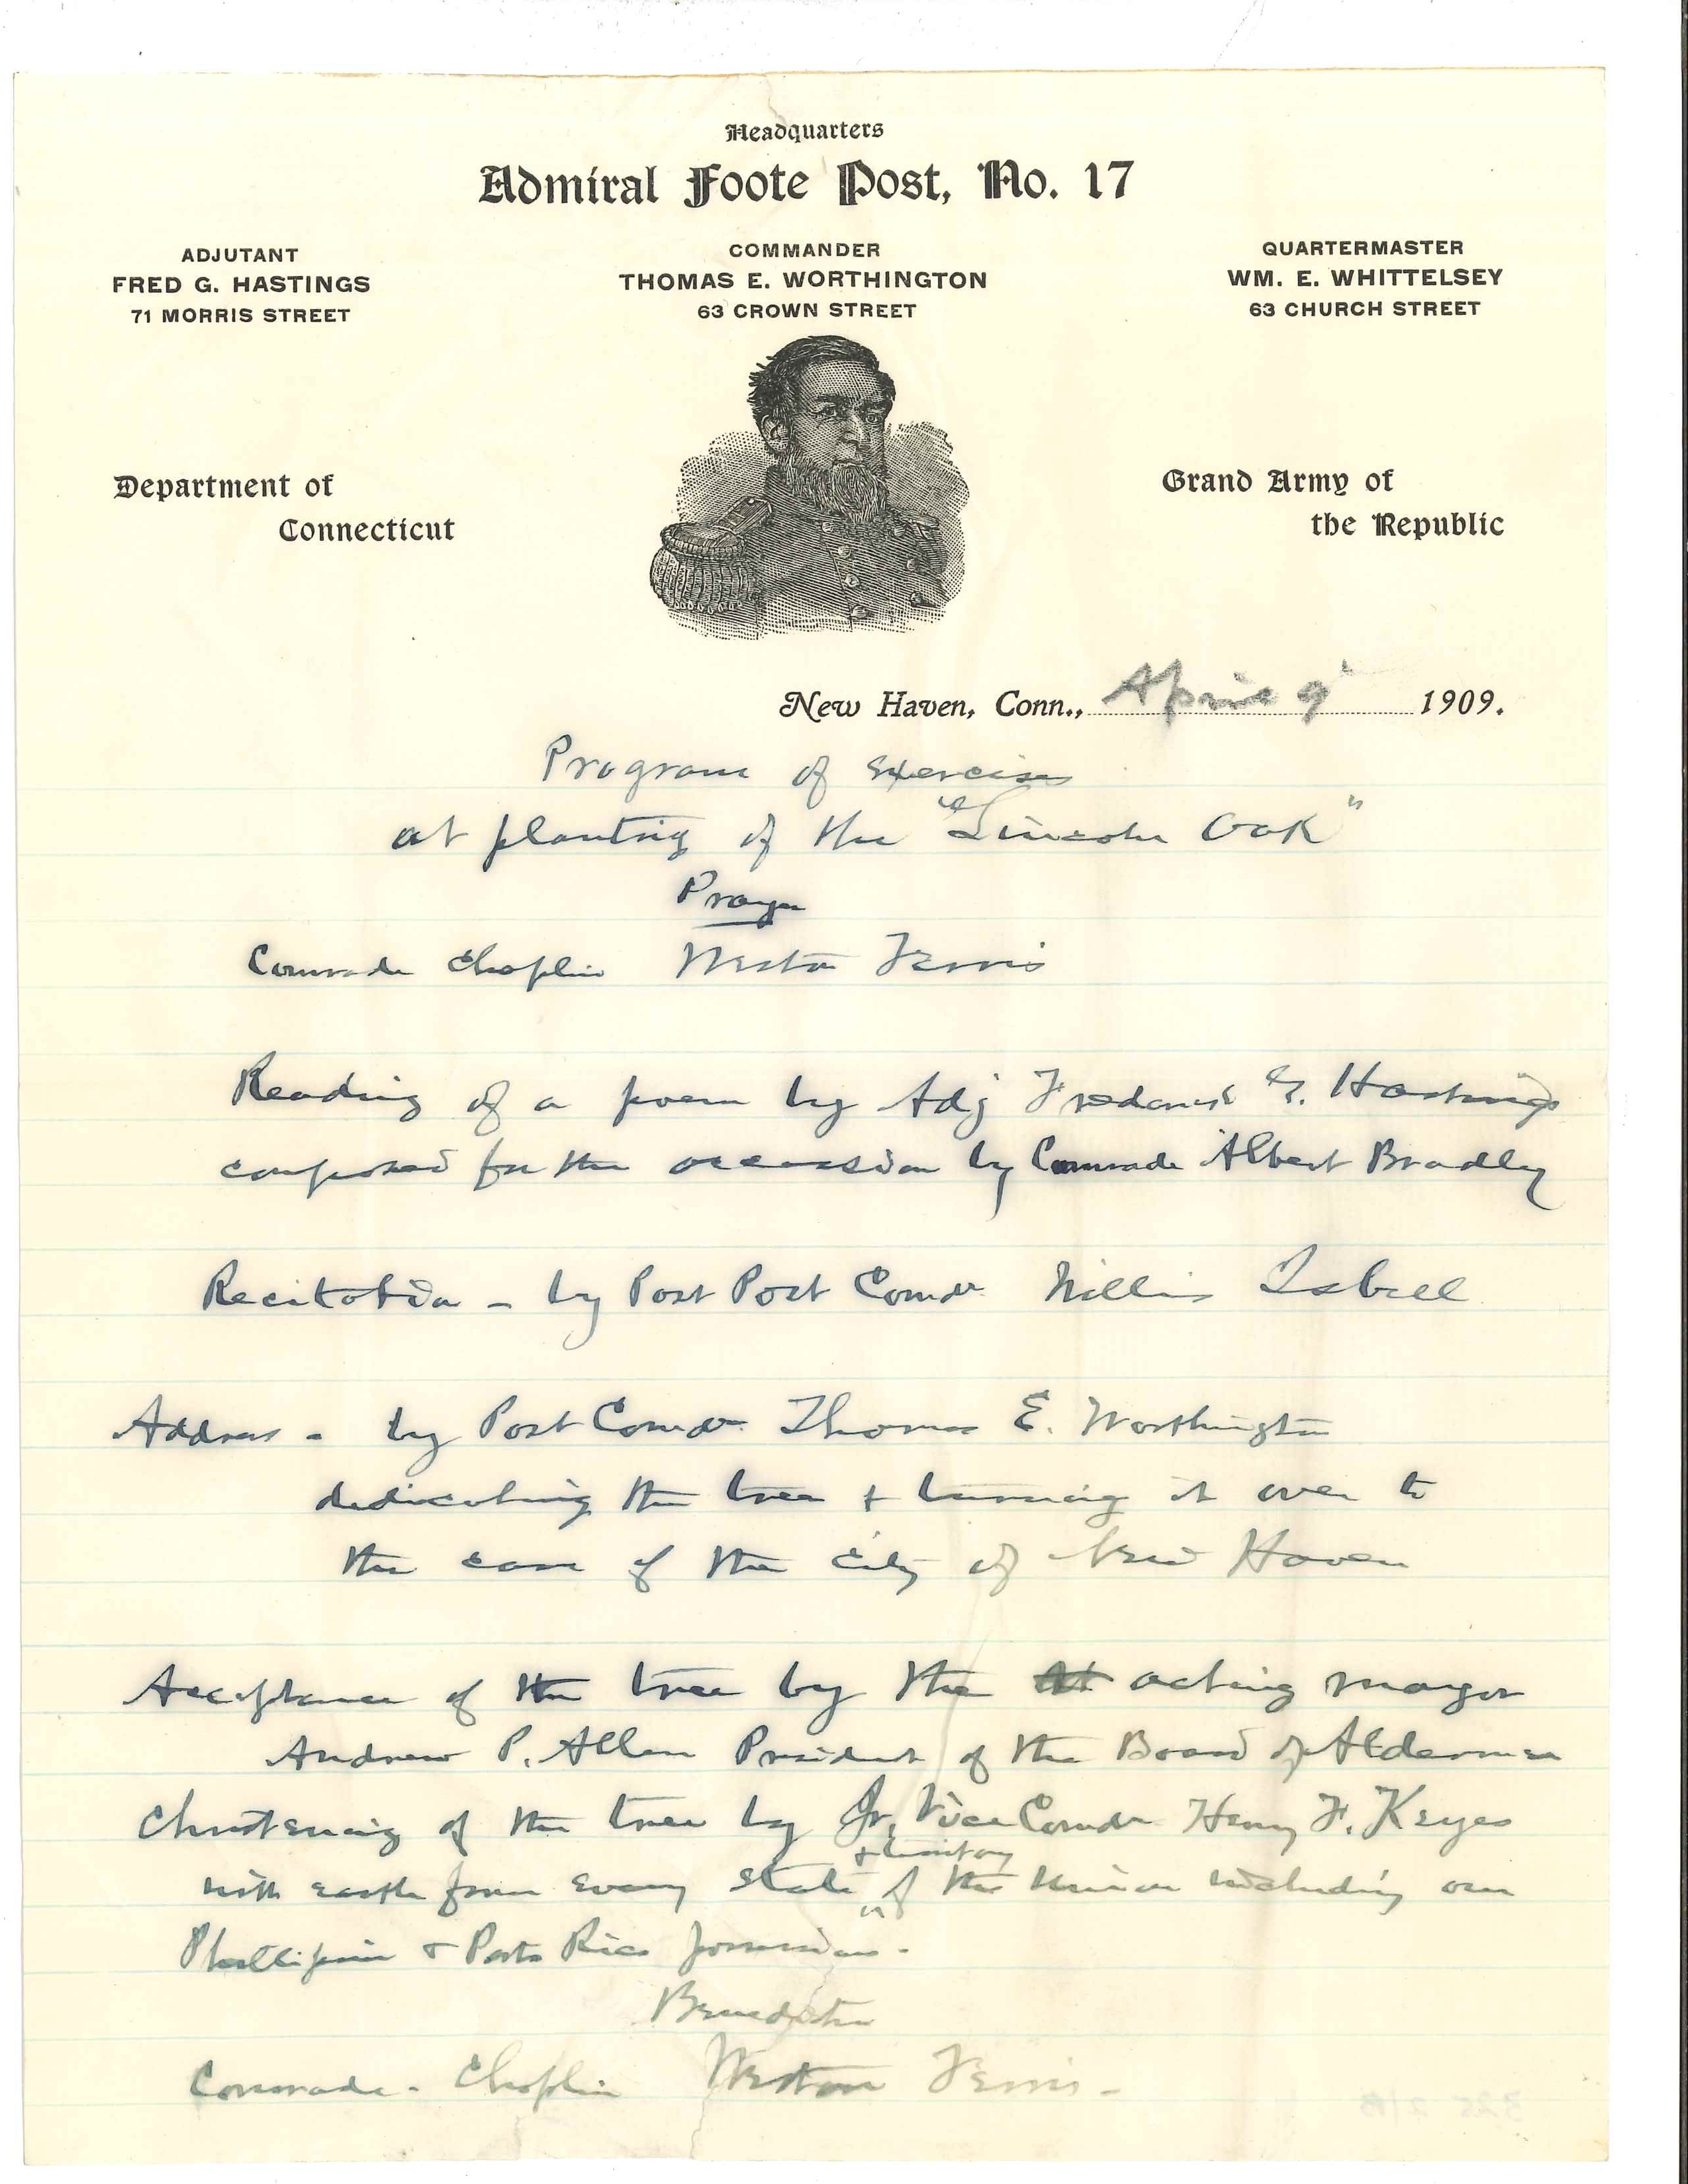 Headquarters
Admiral Foote Post, No. 17
ADJUTANT
FRED G. HASTINGS
71 MORRIS STREET
COMMANDER
THOMAS E. WORTHINGTON
63 CROWN STREET
QUARTERMASTER
WM. E. WHITTELSEY
63 CHURCH STREET
Department of
Connecticut
Grand Army of
the Republic
New Haven, Conn., April 9 1909.
Program of exercises
at planting of the "Lincoln Oak"
Prayer
Comrade Chaplin Weston Ferris
Reading of a poem by Adj Frederick G. Hastings
composed for the occassion by Comrade Albert Bradley
Recitation - by Past Post Comdr Willis Isbell
Address - by Post Comdr Thomas E. Worthington
dedicating the tree + turning it over to
the care of the City of New Haven
Acceptance of the tree by the acting mayor
Andrew P. Allen President of the Board of Aldermen
Christening of the tree by Jr. Vice Comdr Henry F. Keyes
with earth from every state + territory of the Union including our
Phillipine + Porto Rico possessions.
Benediction
Comrade - Chaplin Weston Ferris -